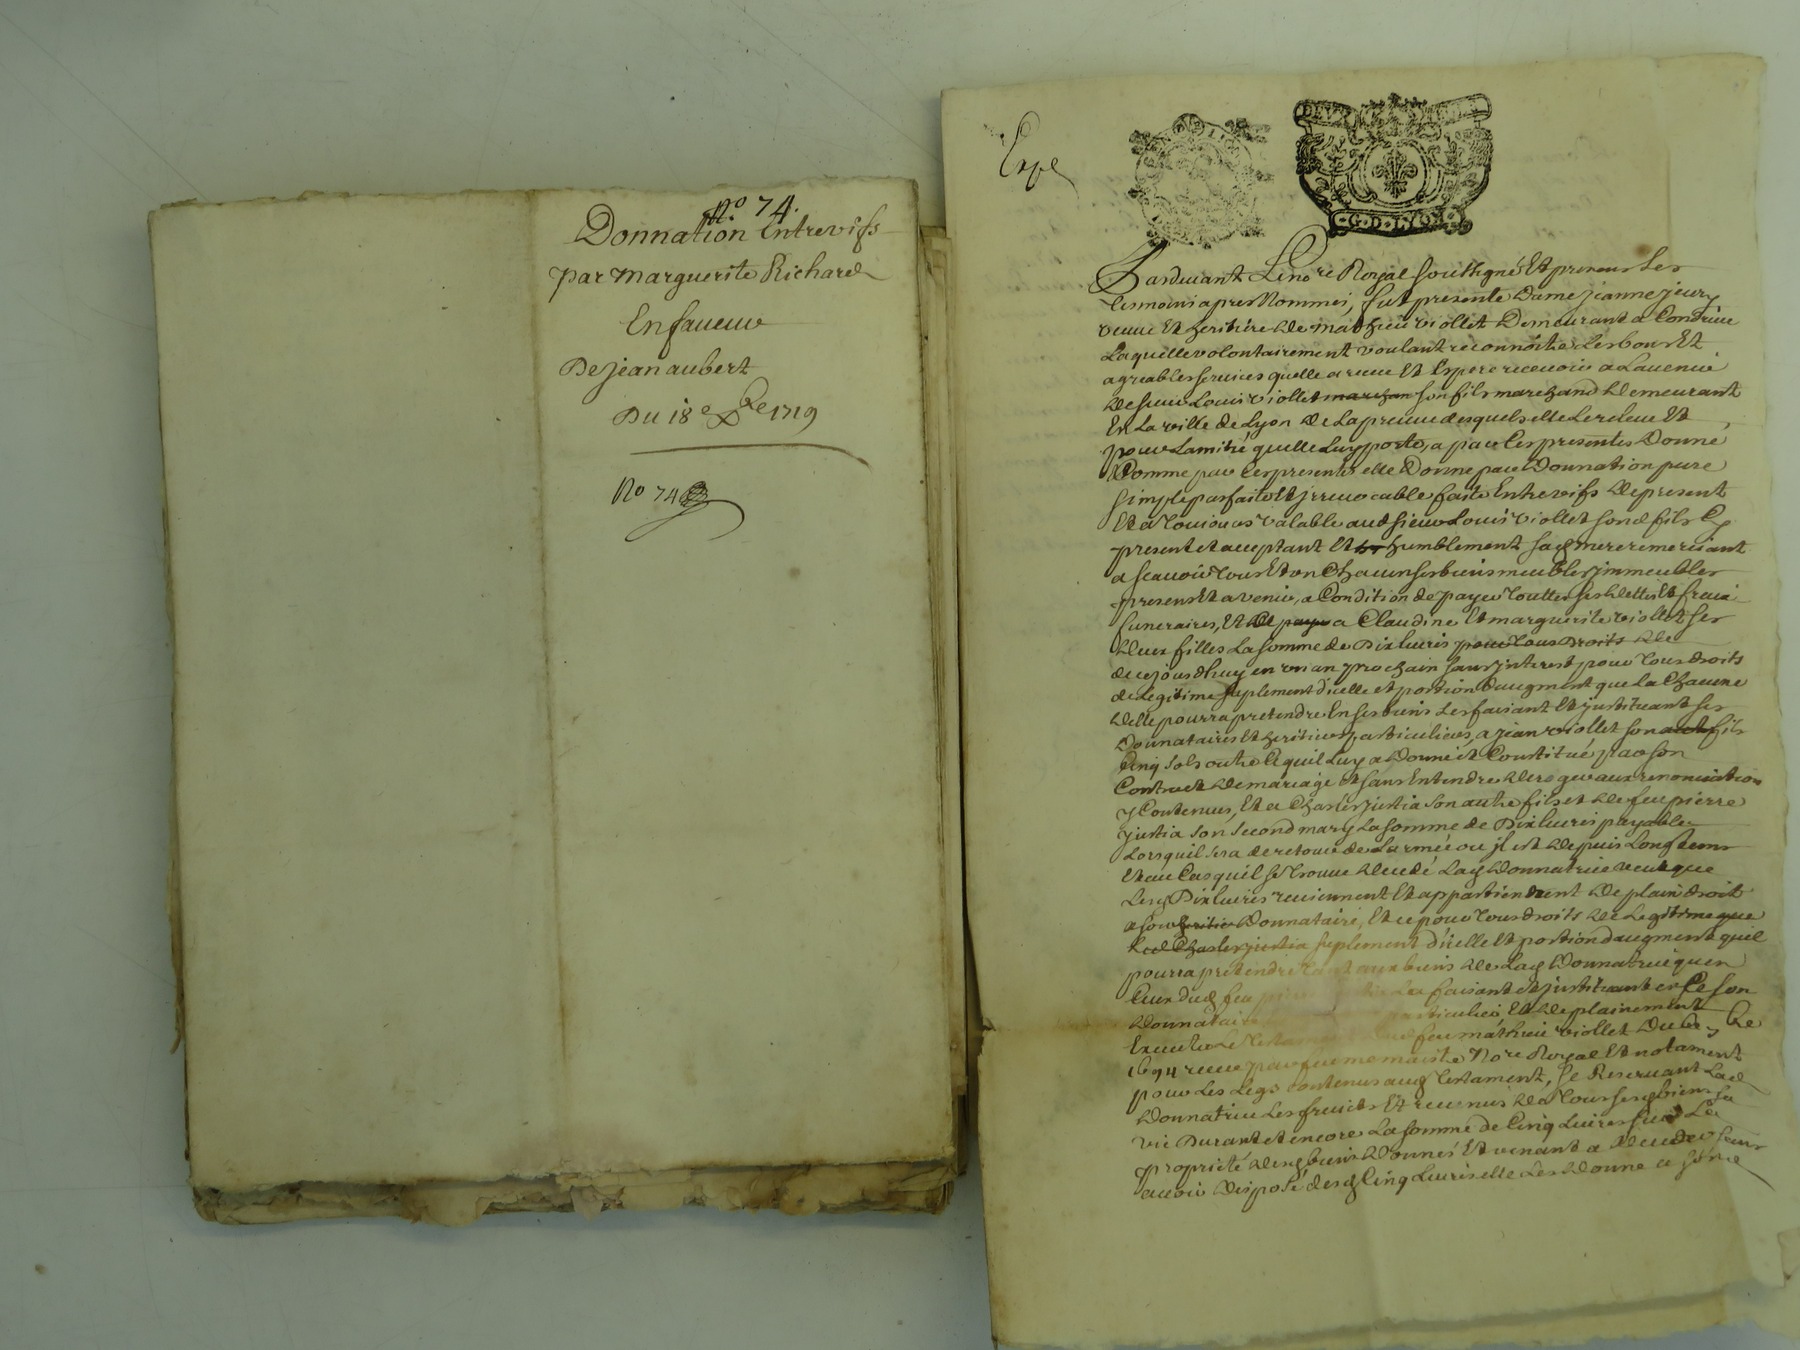 No 74.
Donnation Entrevifs
par marguerite Richard
En faueur
De jean aubert
Du 18e Xbre 1719
No 74
Expé
Pardeuant Le no.re Royal soussigné Et presens Les
tesmoins apres Nommés, fut presente Dame jeanne jeury
veuue Et heritière de mathieu viollet Demeurant a Condrieu
Laquelle volontairement voulant reconnoitre Les bons Et
agreables seruices quelle a receu Et Espere receuoir a Lauenir
de sieur Louis viollet marchan son fils marchand demeurant
En La ville de Lyon de La preuue desquels elle Le releue Et
pour Lamitié quelle Luy porte, a par Ces presentes Donné
Comme par Ces presentes elle Donne par Donnation pure
simple parfaite Et jrreuocable faite Entrevifs de present
Et a Toujours valable aud sieur Louis viollet sond fils Cy
present et acceptant Et humblement sad mere remerciant
a scauoir tous Et un Chacun ses biens meubles jmmeubles
presens Et a venir, a Condition de payer Touttes ses debtes Et fraix
funeraires, Et de payer a Claudine Et marguerite viollet ses
deux filles La somme de Dix Liures pour Tous Droits de
de ce jourdhuy en un an prochain sans jnterest pour Tous droits
de Legitime suplement dicelle et portion daugment que la Chacune
delle pourra pretendre En ses biens Les faisant Et jnstituant ses
Donnataires Et heritieres particulieres, a jean viollet son autre fils
Cinq sols outre Ce quil Luy a Donné et Constitué par son
Contract de mariage et sans Entendre deroger aux renonciations
y Contenues, Et a Charles justia son autre fils et de feu pierre
justia son second mary La somme de Dix Liures payable
Lorsquil sera de retour de Larmée ou jl est depuis Longtems
Et au Cas quil se Trouue decedé Lad Donnatrice veut que
Lesd Dix Liures reuiennent Et appartiennent de plain droit
a son heritier Donnataire, Et ce pour Tous droits de Legitime que
Led Charles justia suplement dicelle Et portion daugment quil
pourra pretendre Tant aux biens de Lad Donnatrice quen
Ceux dud feu Le faisant et jnstituant en Ce son
Donnataire particulier, Et de plainement
Executer Le Testament dud feu mathieu viollet du
1694 receu par feu me Nore Royal Et notament
pour Les Legs contenus aud Testament, se Reseruant Lad
Donnatrice Les fruicts Et reuenus de Tous sesd biens sa
vie Durant et encore La somme de Cinq Liures sur La
proprieté desd biens Donnés Et venant a deceder sans
auoir disposé desd Cinq Liures elle Les Donne a sond